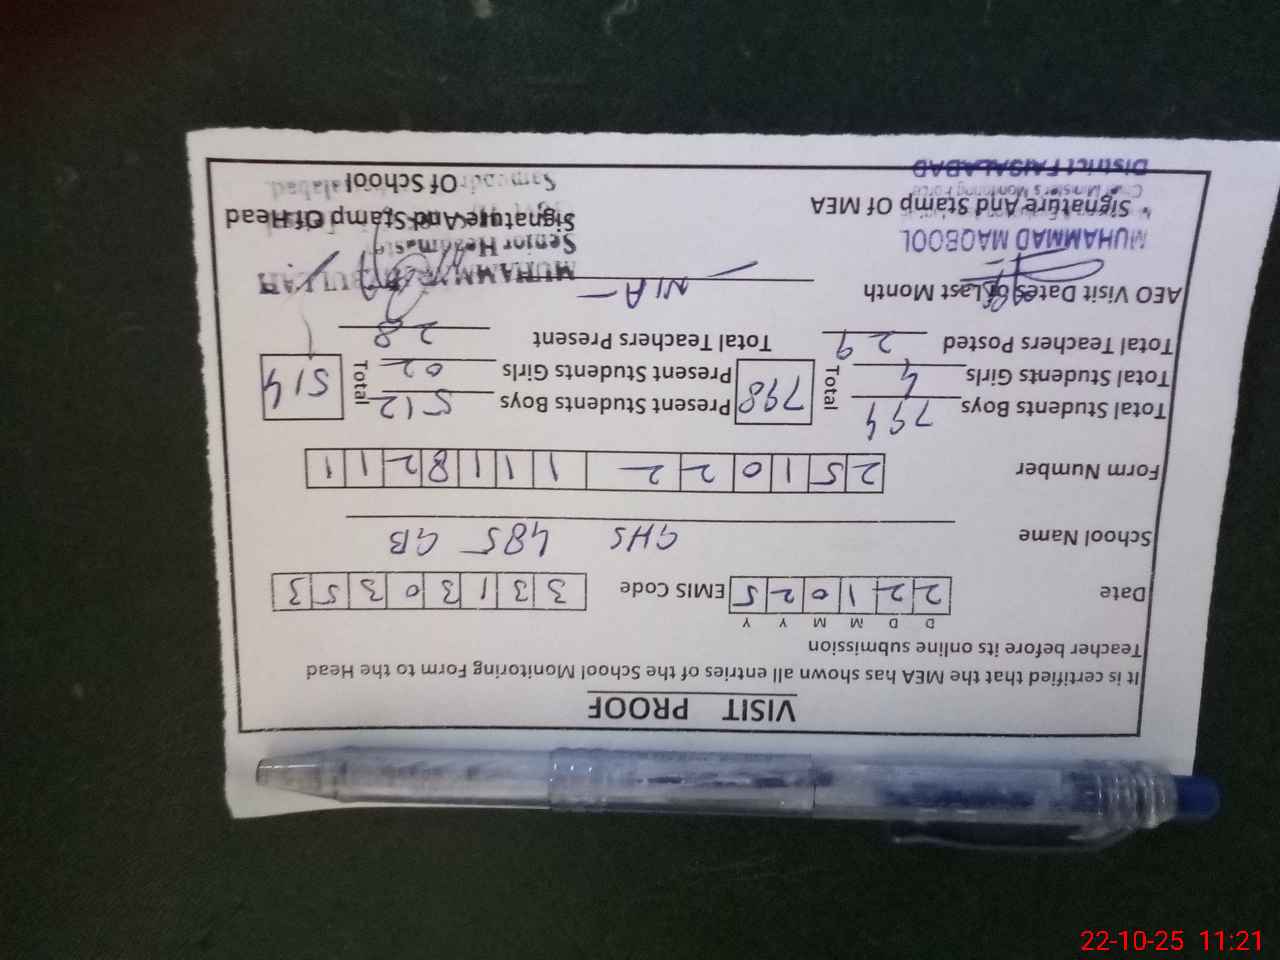 VISIT PROOF
It is certified that the MEA has shown all entries of the School Monitoring Form to the Head
Teacher before its online submission
D D M M Y Y
Date 2 2 1 0 2 5 EMIS Code 3 3 1 3 0 3 5 3
School Name GHS 485 GB
Form Number 2 5 1 0 2 2 1 1 1 8 2 1 1
Total Students Boys 794 Total 798 Present Students Boys 512 Total 514
Total Students Girls 4 Present Students Girls 02
Total Teachers Posted 29 Total Teachers Present 28
AEO Visit Dates of Last Month N/A
MUHAMMAD MAQBOOL
Senior Headmaster
Signature And Stamp Of MEA Signature And Stamp Of Head
Of School
District FAISALABAD
22-10-25 11:21